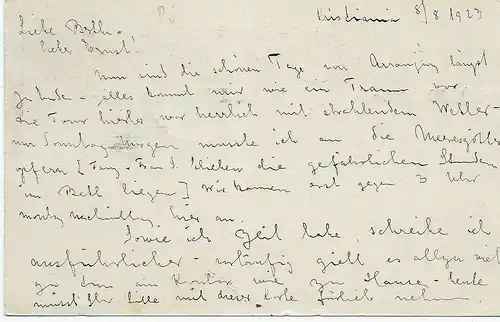 Kristiania 8/8 1923
Liebe
lieber Ernst!
Nun sind die schönen Tage von längst
zu Ende - alles kommt mir wie ein Traum vor.
die Tour hierher war herrlich mit strahlendem Wetter -
nur Sonntag Morgen musste ich an die Meeresgötter
opfern [ Frau I. blieben die gefährlichen Stunden
im Bett liegen ] Wir kamen erst gegen 3 Uhr
montag nachmittag hier an.
Sowie ich Zeit habe, schreibe ich
ausführlicher - vorläufig giebt es allzu viel
zu tun im Kontor wie zu Hause - heute
müsst Ihr bitte mit dieser Karte fürlieb nehmen.